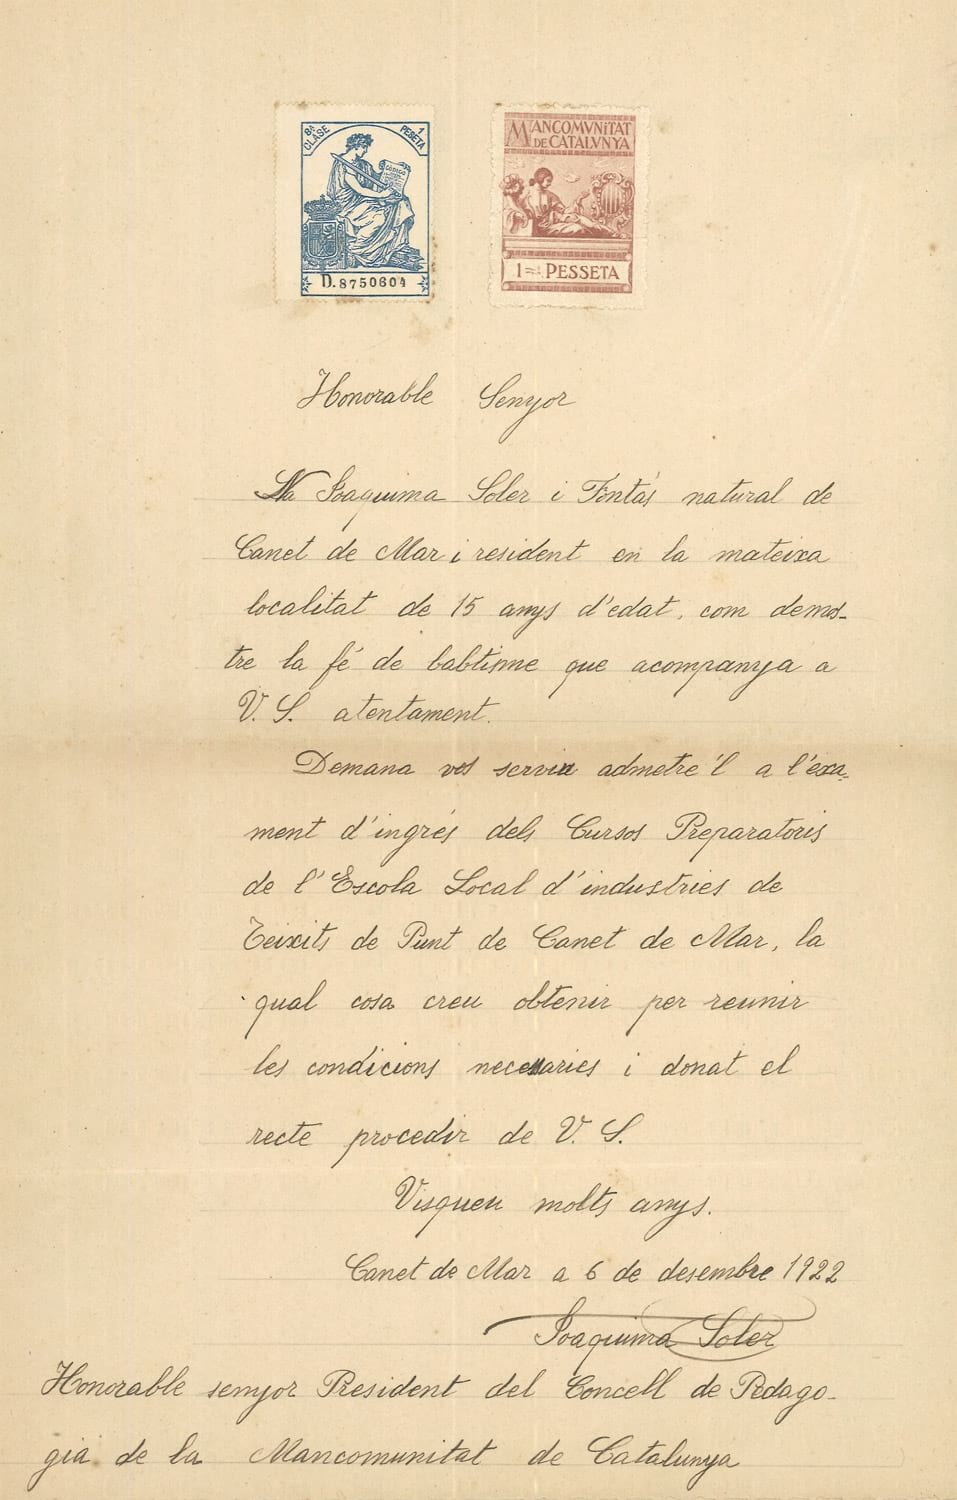 8ª CLASE 1 PESETA
CODIGO
D.8750604
MANCOMVNITAT
DE CATALVNYA
1 PESSETA
Honorable Senyor
Na Joaquima Soler i Fontás natural de
Canet de Mar i resident en la mateixa
localitat de 15 anys d'edat, com demos-
tre la fé de babtisme que acompanya a
V. S. atentament.
Demana vos serviu admetre'l a l'exa-
ment d'ingrés dels Cursos Preparatoris
de l'Escola Local d'industries de
Teixits de Punt de Canet de Mar, la
qual cosa creu obtenir per reunir
les condicions necessaries i donat el
recte procedir de V. S.
Visqueu molts anys.
Canet de Mar a 6 de desembre 1922
Joaquima Soler
Honorable senyor President del Concell de Pedago-
gia de la Mancomunitat de Catalunya